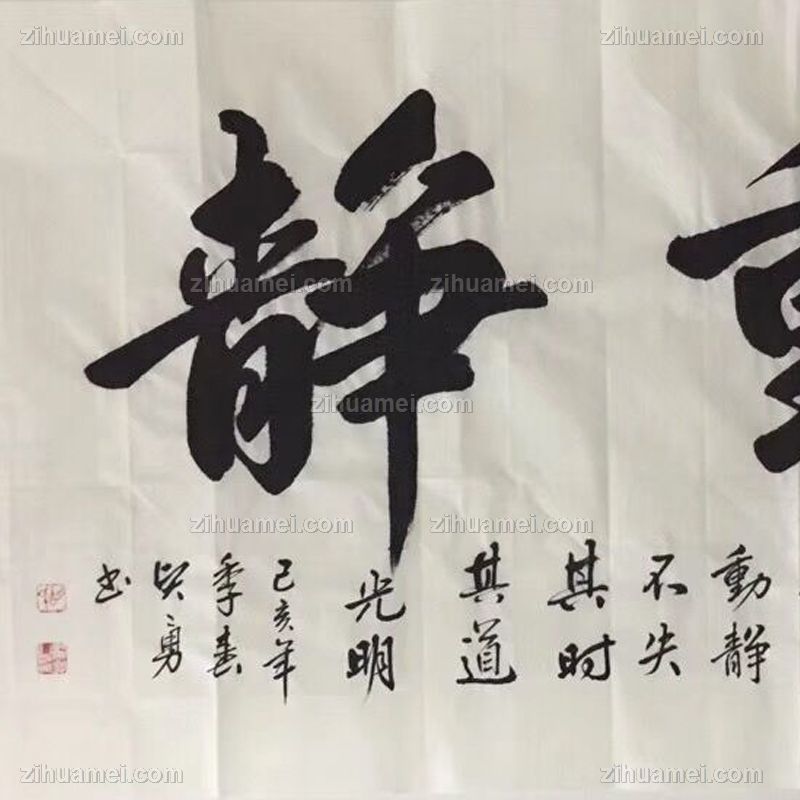 靜
動靜
不失
其时
其道
光明
己亥年
季春
勇
书
zihuamei.com
zihuamei.com
zihuamei.com
zihuamei.com
zihuamei.com
zihuamei.com
zihuamei.com
zihuamei.com
zihuamei.com